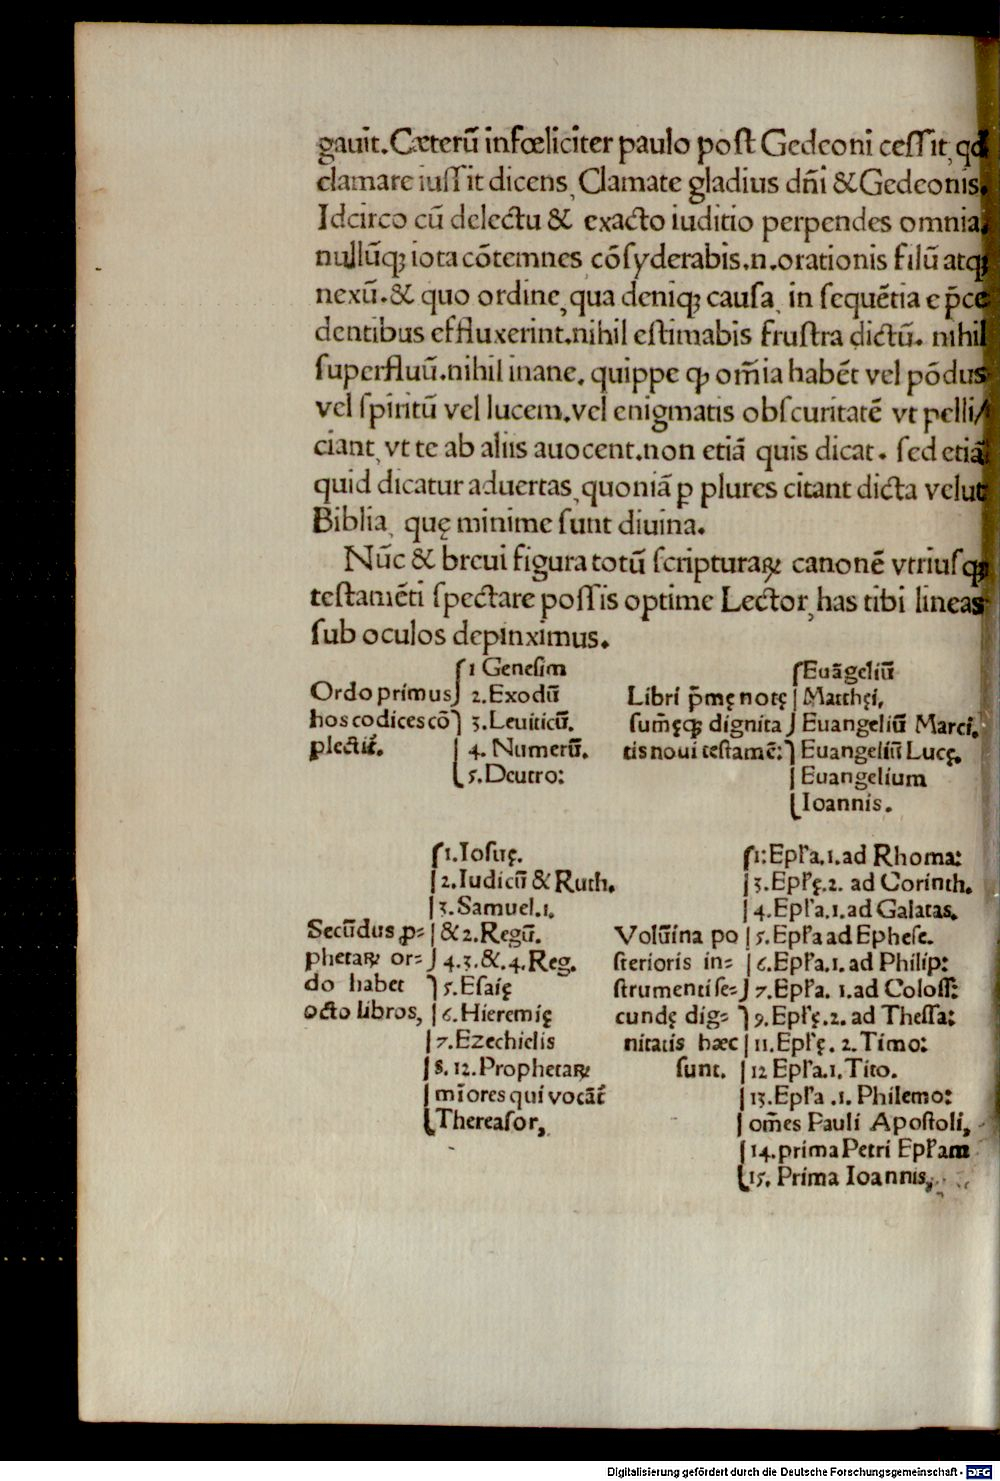 gauit. Cæterū infœliciter paulo poſt Gedeoni ceſſit, qd
clamare iuſſit dicens, Clamate gladius dn̄i & Gedeonis.
Idcirco cū delectu & exacto iuditio perpendes omnia,
nullūqꝫ iota cōtemnes cōſyderabis.n.orationis filū atqꝫ
nexū. & quo ordine, qua deniqꝫ cauſa, in ſequētia e p̄ce
dentibus effluxerint. nihil eſtimabis fruſtra dictū. nihil
ſuperfluū. nihil inane, quippe qꝫ om̄ia habēt vel pōdus
vel ſpiritū vel lucem. vel enigmatis obſcuritatē vt pelli/
ciant, vt te ab aliis auocent. non etiā quis dicat. ſed etiā
quid dicatur aduertas, quoniā ꝑ plures citant dicta velut
Biblia, quę minime ſunt diuina.
Nūc & breui figura totū ſcripturaꝝ canonē vtriuſqꝫ
teſtamēti ſpectare poſſis optime Lector, has tibi lineas
ſub oculos depinximus.
Ordo primus
hos codices cō
plectit̄.
1 Geneſim
2. Exodū
3. Leuiticū.
4. Numerū.
5. Deutro:
Libri p̄mę notę
ſum̄ęqꝫ dignita
tis noui teſtamē:
Euāgeliū
Matthęi,
Euangeliū Marci,
Euangeliū Lucę,
Euangelium
Ioannis.
Secūdus ꝓ=
phetaꝝ or=
do habet
octo libros,
1. Ioſuę.
2. Iudicū & Ruth.
3. Samuel. 1.
& 2. Regū.
4. 3. &. 4. Reg.
5. Eſaię
6. Hieremię
7. Ezechielis
8. 12. Prophetaꝝ
mīores qui vocāt̄
Thereaſor,
Volūina po
ſterioris in=
ſtrumenti ſe=
cundę dig=
nitatis hæc
ſunt.
1: Epl̄a. 1. ad Rhoma:
3. Epl̄ę. 2. ad Corinth.
4. Epl̄a. 1. ad Galatas.
5. Epl̄a ad Epheſe.
6. Epl̄a. 1. ad Philip:
7. Epl̄a. 1. ad Coloſſ:
9. Epl̄ę. 2. ad Theſſa:
11. Epl̄ę. 2. Timo:
12 Epl̄a. 1. Tito.
13. Epl̄a .1. Philemo:
om̄es Pauli Apoſtoli,
14. prima Petri Epl̄am
15. Prima Ioannis,
Digitalisierung gefördert durch die Deutsche Forschungsgemeinschaft - DFG